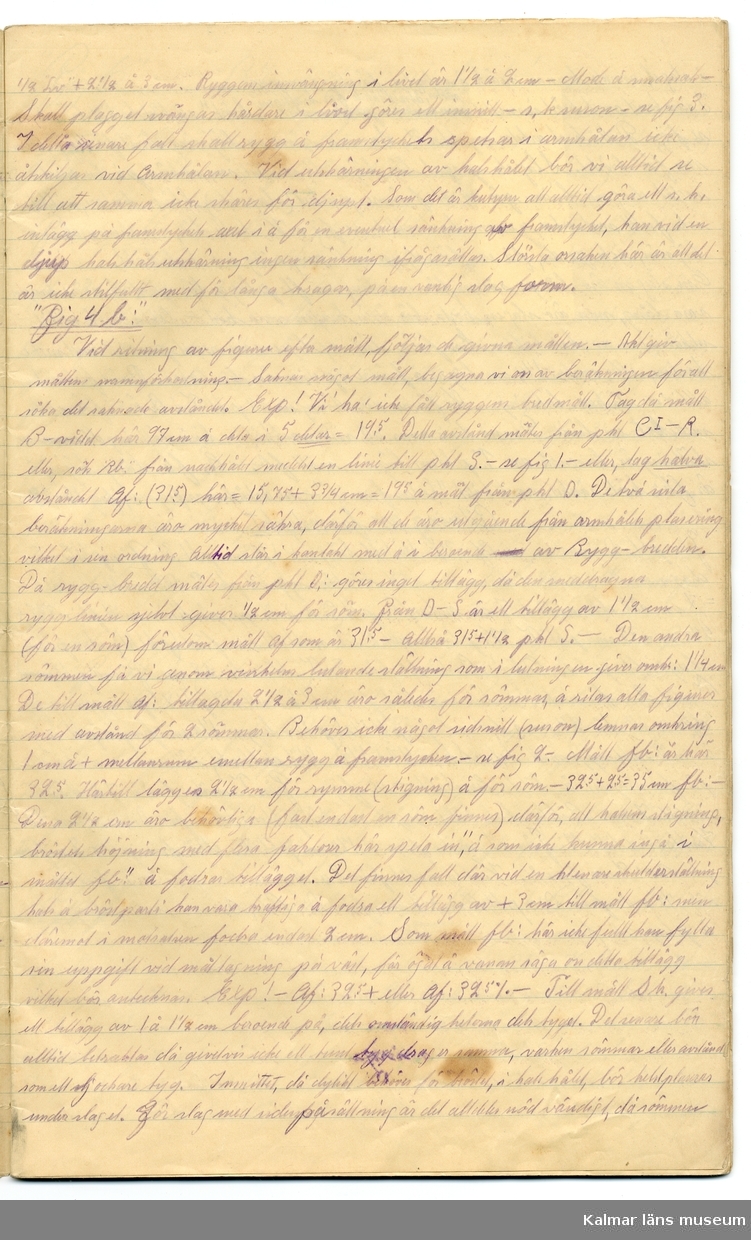 1/2 Liv + 2 1/2 á 3 cm. Ryggen insvängning i livet är 1 1/2 á 2 cm – Mode á smaksak –
Skall plagget svängas hårdare i livet göres ett insnitt – s, k suson – se fig 3.
I detta senare fall skall rygg á framstyckets spetsar i armhålan icke
åtskiljas vid armhålan. Vid utskärningen av halshålet bör vi alltid se
till att samma icke skäres för djupt. Som det är kutym att alltid göra ett s. k.
inlägg på framstyckets axel i á för en eventuel sänkning av framstycket, kan vid en
djup halshåls utskärning ingen sänkning ifrågasättas. Största orsaken här är att det
är icke stilfullt med för långa kragar, på en vanlig slag form.
"Fig 4 b:"
Vid ritning av figurer efter mått, följas de givna måtten. – Aktgiv
måttens namnförkortning. – Saknas något mått, begagna vi oss av beräkningen för att
söka det saknade avståndet. Exp! Vi ha' icke fått ryggens bredmått. Tag då mått
B-vidd här 97 cm á dela i 5 delar = 19⁵. Detta avstånd mätes från pkt C I – R.
eller, sök Rb: från nackhålet meddelst en linie till pkt S. – se fig 1. – eller, tag halva
avståndet Af: (31⁵) här = 15,75 + 3 3/4 cm = 19⁵ á mät från pkt O. De två sista
beräkningarna äro mycket säkra, därför att de äro utgående från armhålets plasering
vilket i sin ordning alltid står i kontakt med á i beroende av Rygg-bredden.
Då rygg-bredd mätes från pkt C; göres inget tillägg, då den neddragna
rygg linien sjelvt giver 1/2 cm för söm. Från O – S är ett tillägg av 1 1/2 cm
(för en söm) förutom mått Af som är 31⁵ – Alltså 31⁵ + 1 1/2 pkt S. – Den andra
sömmen få vi genom vinkelns lutande ställning som i lutningen giver omkr: 1 1/4 cm
De till mått Af: tillagda 2 1/2 á 3 cm äro således för sömmar, á ritas alla figurer
med avstånd för 2 sömmar. Behöves icke något sidsnitt (suson) lemnas omkring
1 cm á + mellanrum emellan rygg á framstycken. – se fig 2. – Mått fb: är här
32⁵. Härtill lägges 2 1/2 cm för rymme (stigning) á för söm. – 32⁵ + 2⁵ = 35 cm fb: –
Dessa 2 1/2 cm äro behövliga (fast endast en söm finnes) därför, att halsens stigning,
bröstets höjning med flera faktorer här spela in", á som icke kunna ingå i
måttet fb." á fodras tillägget. Det finnes fall där vid en klenare skulderställning
hals á bröstparti kan vara kraftiga á fodra ett tillägg av + 3 cm till mått fb: men
däremot i motsatsen fodra endast 2 cm. Som mått fb: här icke fullt kan fylla
sin uppgift vid måttagning på väst, får ögat á vanan säga om detta tillägg
vilket bör antecknas. Exp! – Af: 32⁵ + eller Af: 32⁵ ⁒. – Till mått Sk. gives
ett tillägg av 1 á 1 1/2 cm beroende på, dels omständigheterna dels tyget. Det senare bör
alltid betraktas då givetvis icke ett tunt tyg drager samma, varken sömmar eller avstånd
som ett tjockare tyg. Insnittet, då dylikt behöves för bröst, i halshålet, bör helst placeras
under slaget. För slag med sidenpåsättning är det alldeles nödvändigt, då sömmen
Kalmar läns museum